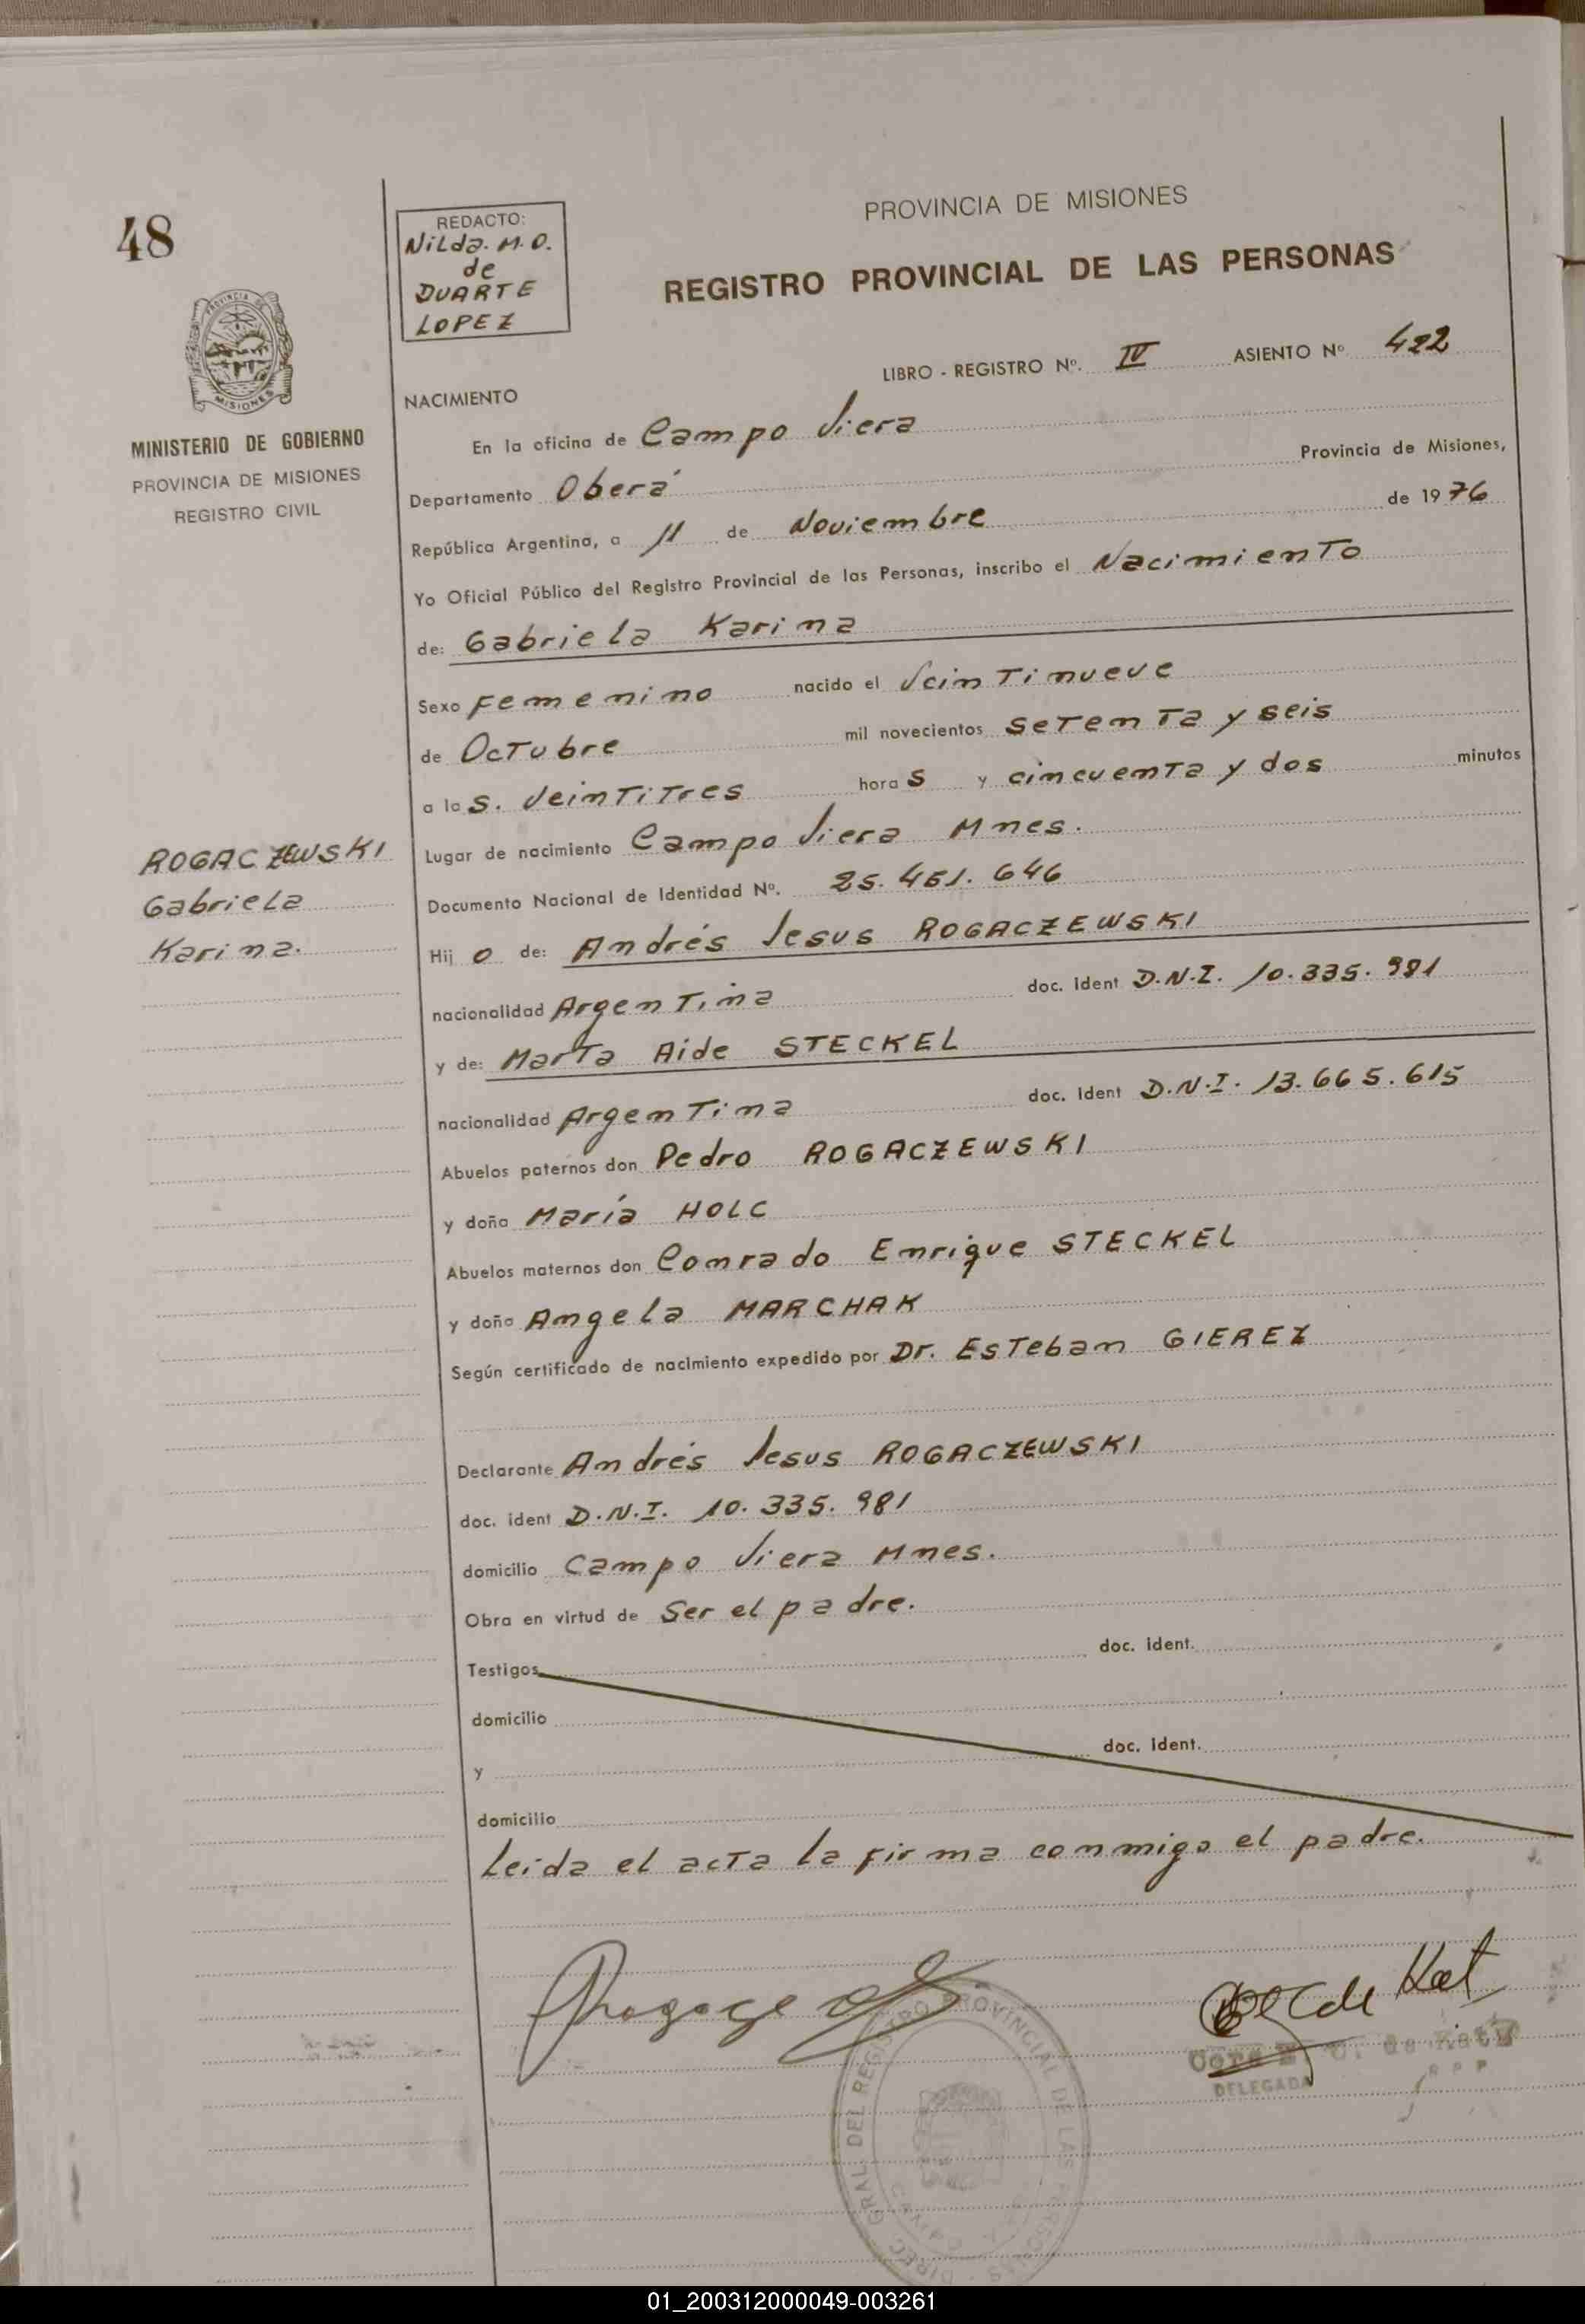 48
REDACTO:
Nilda. M. O.
de
DUARTE
LOPEZ
PROVINCIA DE MISIONES
REGISTRO PROVINCIAL DE LAS PERSONAS
PROVINCIA DE
MISIONES
MINISTERIO DE GOBIERNO
PROVINCIA DE MISIONES
REGISTRO CIVIL
LIBRO - REGISTRO Nº. IV ASIENTO Nº 422
NACIMIENTO
En la oficina de Campo Viera
Departamento Oberá Provincia de Misiones,
República Argentina, a 11 de Noviembre de 1976
Yo Oficial Público del Registro Provincial de las Personas, inscribo el Nacimiento
de: Gabriela Karina
Sexo Femenino nacido el Veintinueve
de Octubre mil novecientos setenta y seis
a las. Veintitres horas y cincuenta y dos minutos
Lugar de nacimiento Campo Viera Mnes.
Documento Nacional de Identidad Nº. 25.451.646
ROGACZEWSKI
Gabriela
Karina.
Hijo de: Andrés Jesus ROGACZEWSKI
nacionalidad Argentina doc. Ident D.N.I. 10.335.981
y de: Marta Aide STECKEL
nacionalidad Argentina doc. Ident D.N.I. 13.665.615
Abuelos paternos don Pedro ROGACZEWSKI
y doña María HOLC
Abuelos maternos don Conrado Enrique STECKEL
y doña Angela MARCHAK
Según certificado de nacimiento expedido por Dr. Esteban GIEREZ
Declarante Andrés Jesus ROGACZEWSKI
doc. ident D.N.I. 10.335.981
domicilio Campo Viera Mnes.
Obra en virtud de Ser el padre.
Testigos doc. ident.
domicilio
y doc. ident.
domicilio
Leida el acta la firma conmigo el padre.
DELEGADA
DIREC. GRAL. DEL REGISTRO PROVINCIAL DE LAS PERSONAS
01_200312000049-003261